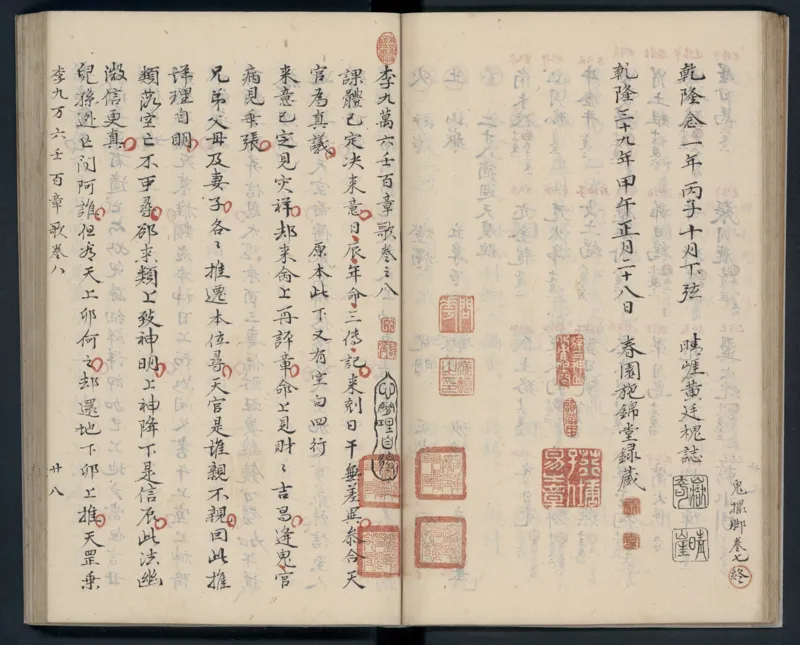 乾隆念一年丙子十月下弦 晴崖黃廷槐誌
乾隆三十九年甲午正月二十八日 春園施錦堂録藏
鬼撮脚卷七終
李九萬六壬百章歌卷之八
課體已定決來意日辰年命三傳記來刻日干無差異參合天
官為真議 原本此下又有空白四行
來意已定見灾祥却來命上再評章命上見財〻吉昌逢鬼官
病見乖張
兄弟父母及妻子各〻推遷本位尋天官是誰親不親回此推
詳理自明
類落空亡不要尋却来類上致神明上神降下是信辰此法幽
微信更真
兒孫逃亡問阿誰但看天上卯何之却還地下卯上推天罡乗
李九万六壬百章歌卷八 廿八